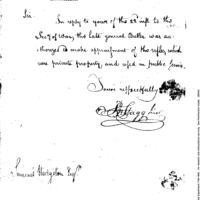 Sir.
In reply to yours of the 22 inst. to the
Secy of War, the late general Butler was au-
thorized to make appraisement of the rifles which
were private property, and used in public service.
Yours respectfully
Samuel Hodgdon Esqr.